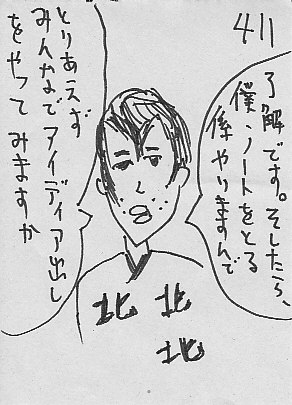 411
了解です。そしたら、
僕、ノートをとる
係やりますんで
とりあえず
みんなでアイディア出し
をやってみますか
北 北
北